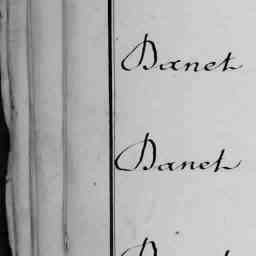 Danet
Danet